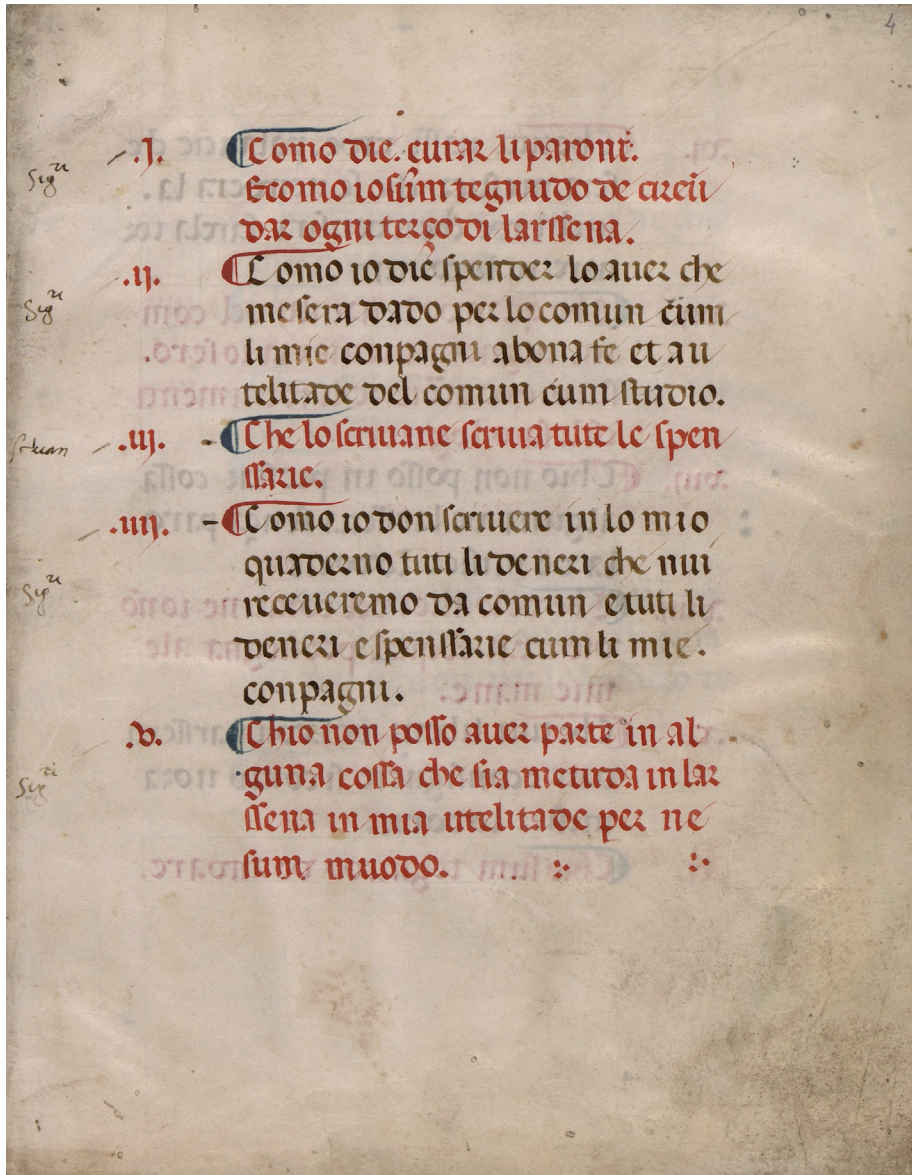 4
.I. Como die. curar li paroni.
Ecomo io sum tegnudo de circu
dar ogni terço di larssena.
.II. Como io die spender lo auer che
me sera dado per lo comun cum
li mie conpagni abona fe et au
telitade del comun cum studio.
.III. Che lo scriuane scriua tute le spen
ssarie.
.IIII. Como io don scriuere in lo mio
quaderno tuti li deneri che nui
receueremo da comun e tuti li
deneri e spenssarie cum li mie.
conpagni.
.V. Chio non posso auer parte in al
guna cossa che sia metuda in lar
ssena in mia utelitade per ne
sum muodo.